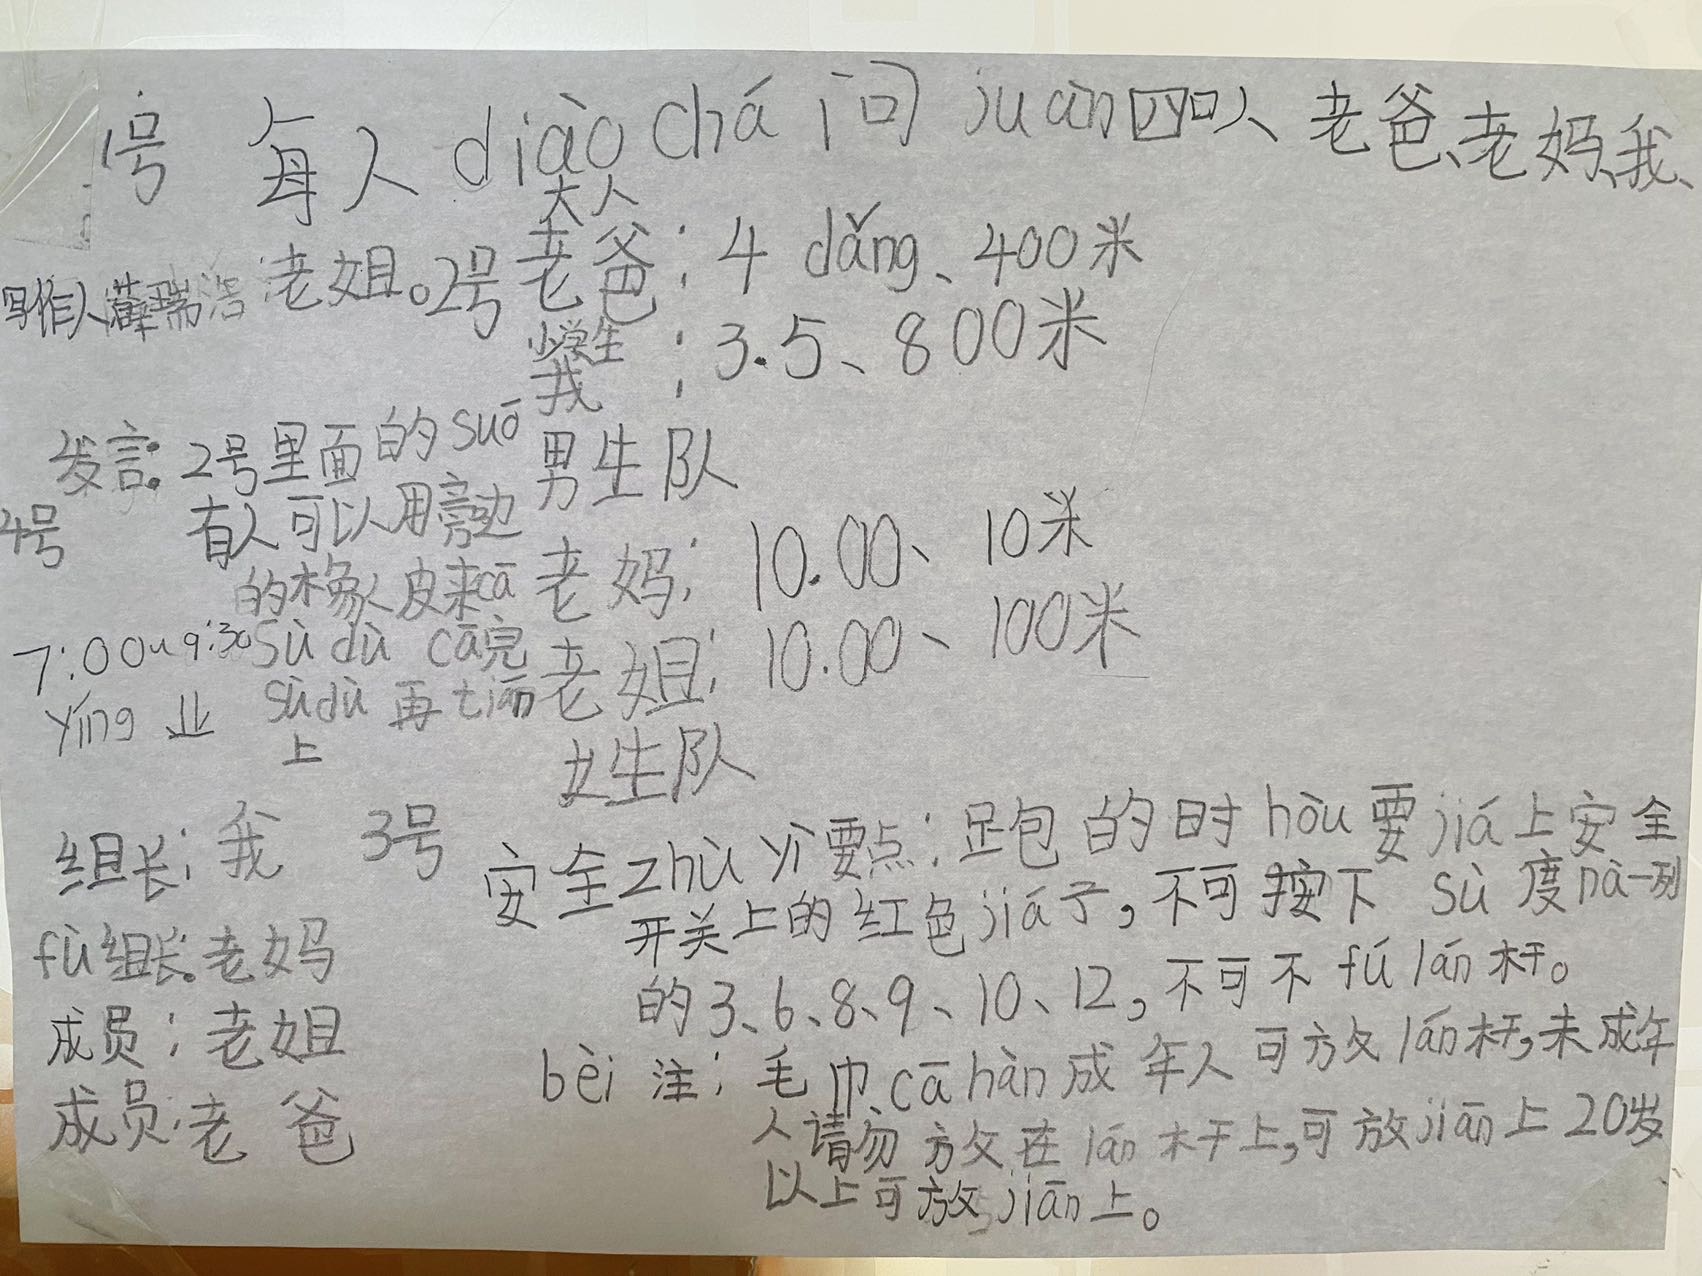 1号 每人 diào chá 问 juàn 四口人 老爸、老妈、我、
老姐。
写作人薛瑞浩
2号
大人
老爸: 4 dǎng、400米
小学生
我 : 3.5、800米
男生队
老妈: 10.00、10米
老姐: 10.00、100米
女生队
4号
发言: 2号里面的 suō
有人可以用旁边
的橡皮来cā
sù dù cā完
sùdù 再tiān
上
7:00~9:30
yíng 业
3号
组长: 我
fù组长:老妈
成员: 老姐
成员:老爸
安全zhù yì要点: 跑的时hòu要jiá上安全
开关上的红色jiá子,不可按下 sù度nà一列
的3、6、8、9、10、12,不可不fú lán杆。
bèi 注: 毛巾cā hàn成年人可放lán杆,未成年
人请勿放在lán杆上,可放jiān上20岁
以上可放jiān上。